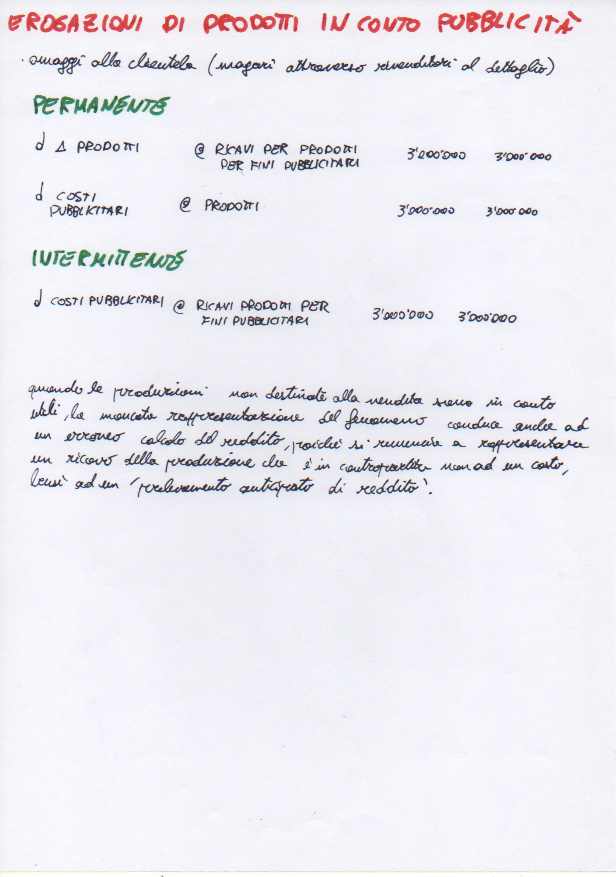 EROGAZIONI DI PRODOTTI IN CONTO PUBBLICITÀ
· omaggi alla clientela (magari attraverso rivenditori al dettaglio)
PERMANENTE
d Δ PRODOTTI @ RICAVI PER PRODOTTI 3'000'000 3'000'000
PER FINI PUBBLICITARI
d COSTI @ PRODOTTI 3'000'000 3'000'000
PUBBLICITARI
INTERMITTENTE
d COSTI PUBBLICITARI @ RICAVI PRODOTTI PER 3'000'000 3'000'000
FINI PUBBLICITARI
quando le produzioni non destinate alla vendita sono in conto
utili, la mancata rappresentazione del fenomeno conduce anche ad
un erroneo calcolo del reddito, poiché si rinuncia a rappresentare
un ricavo della produzione che è in contropartita non ad un costo,
bensì ad un 'prelevamento anticipato di reddito'.